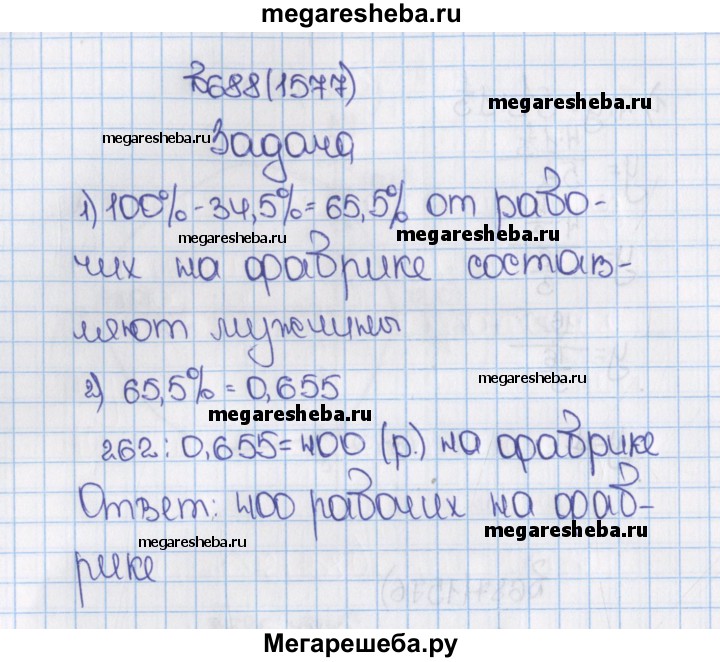 megaresheba.ru
№688(1577)
megaresheba.ru
megaresheba.ru
Задача
1) 100% - 34,5% = 65,5% от рабо-
megaresheba.ru
megaresheba.ru
чих на фабрике состав-
ляют мужчины
2) 65,5% = 0,655
megaresheba.ru
megaresheba.ru
262 : 0,655 = 400 (р.) на фабрике
Ответ: 400 рабочих на фаб-
megaresheba.ru
megaresheba.ru
рике
Мегарешеба.ру